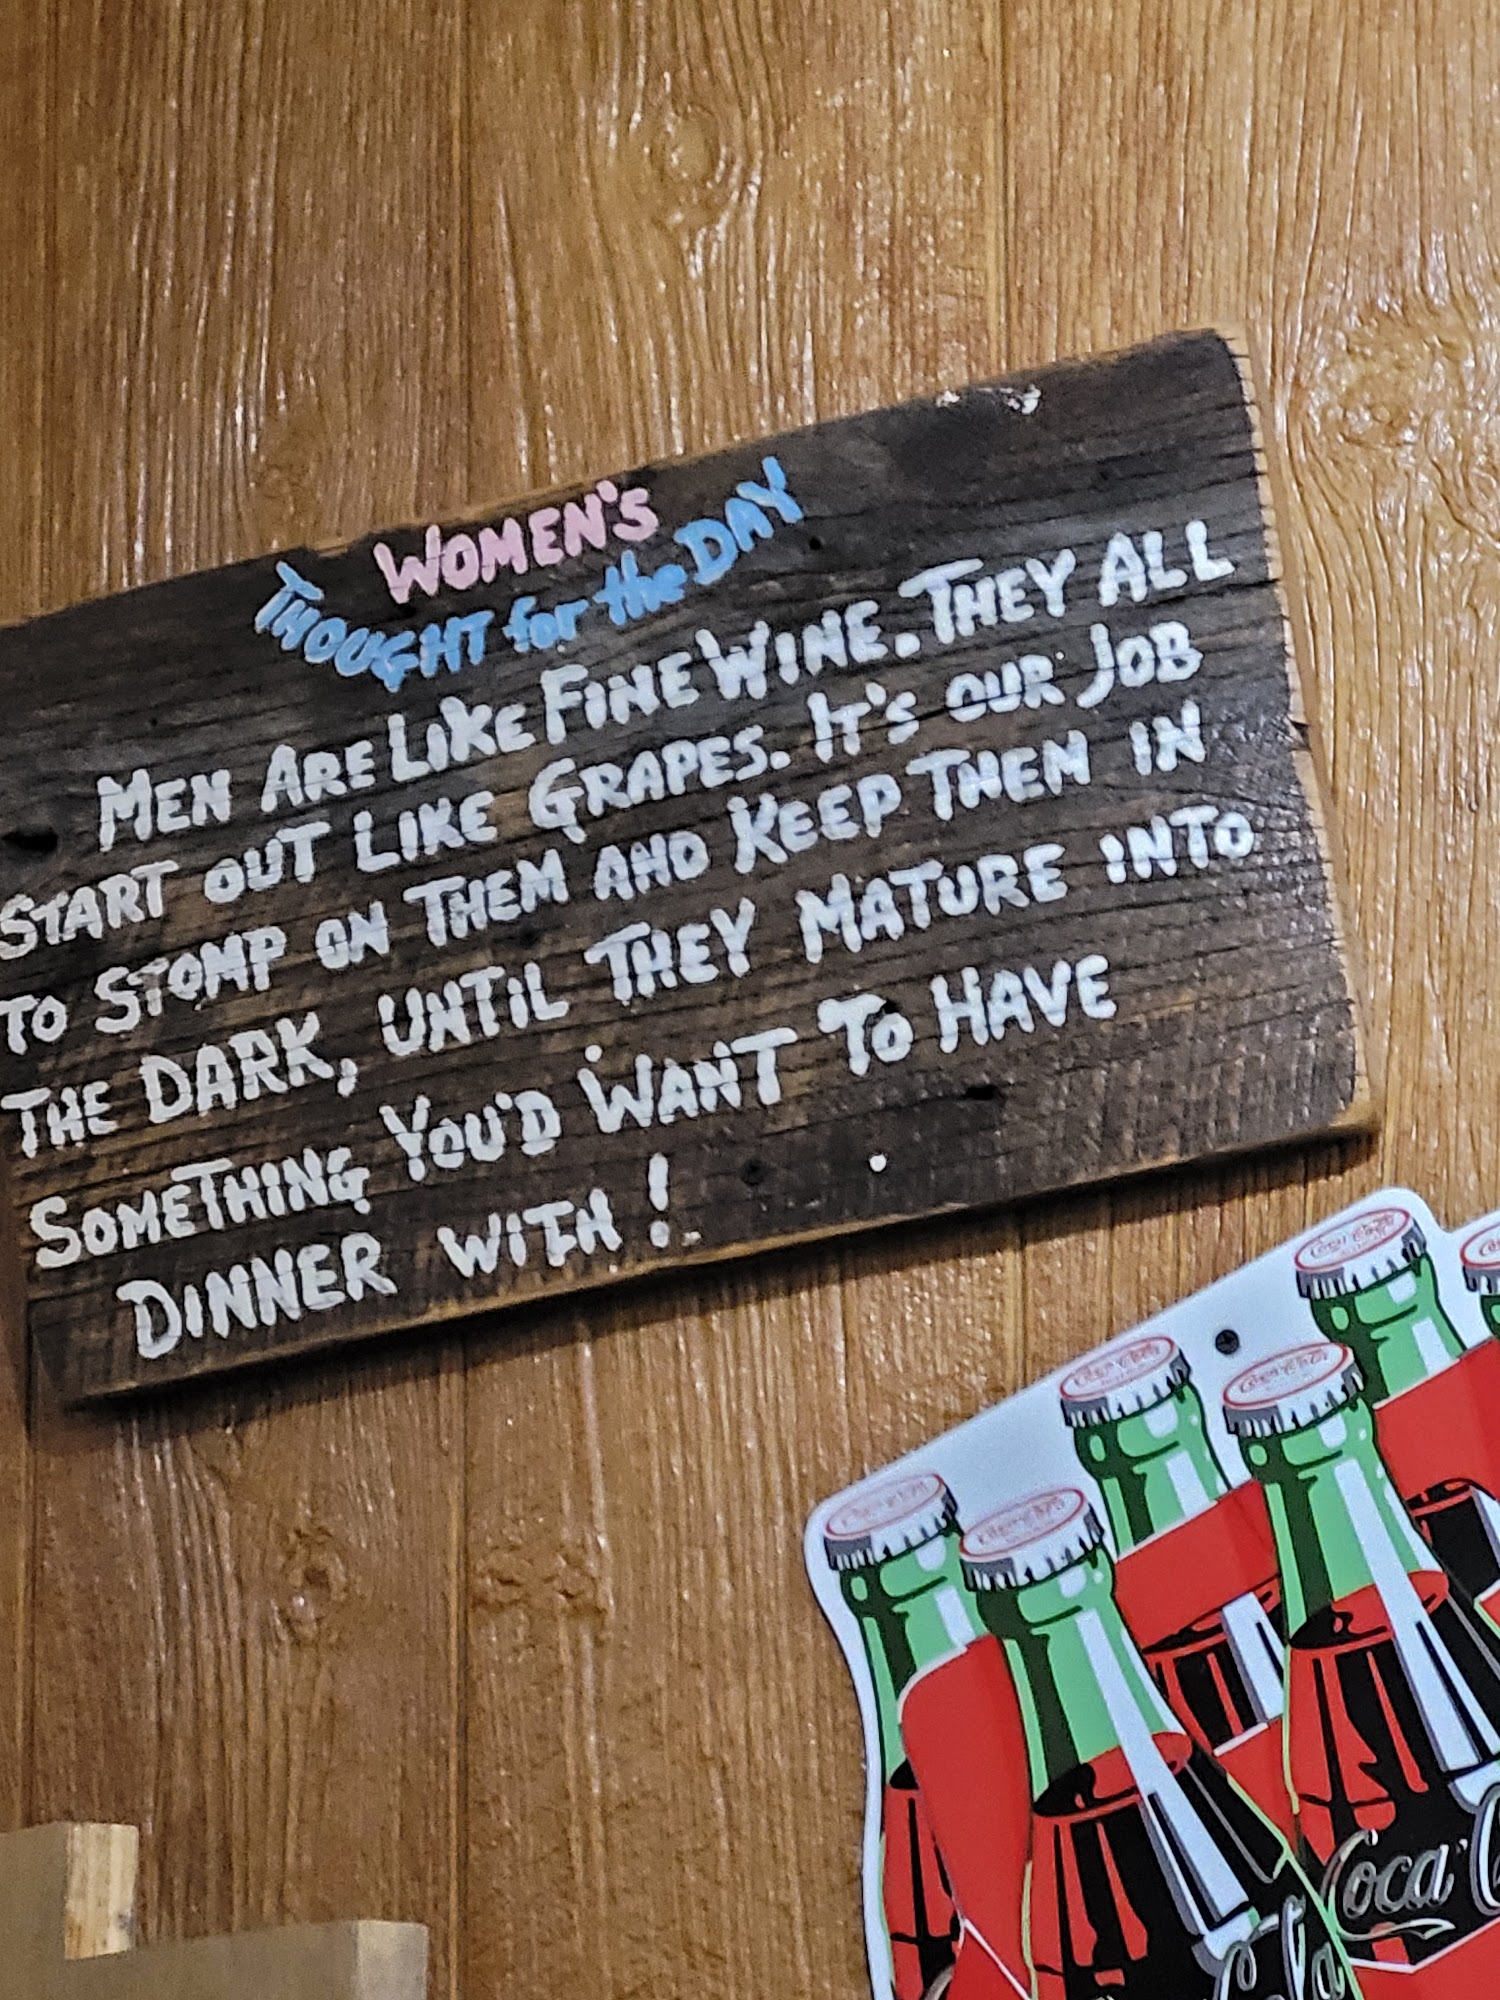 WOMEN'S
THOUGHT for the DAY
MEN ARE LIKE FINE WINE. THEY ALL
START OUT LIKE GRAPES. IT'S OUR JOB
TO STOMP ON THEM AND KEEP THEM IN
THE DARK, UNTIL THEY MATURE INTO
SOMETHING YOU'D WANT TO HAVE
DINNER WITH!
Coca-Cola
Coca-Cola
Coca